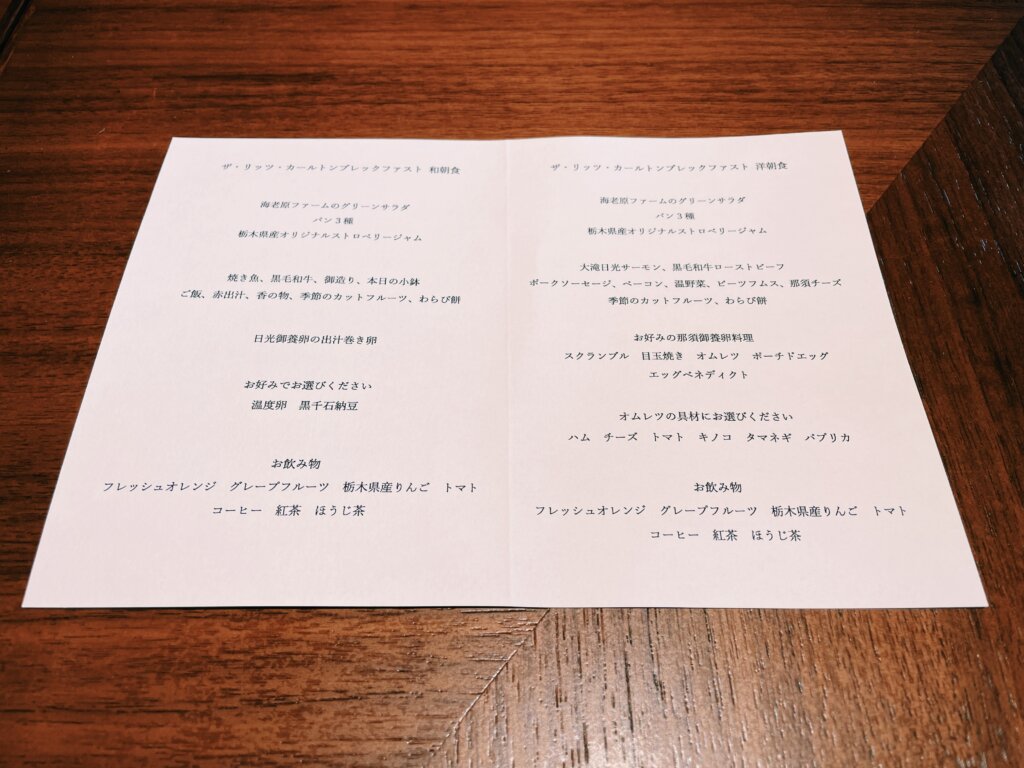 ザ・リッツ・カールトンブレックファスト 和朝食
海老原ファームのグリーンサラダ
パン３種
栃木県産オリジナルストロベリージャム
焼き魚、黒毛和牛、御造り、本日の小鉢
ご飯、赤出汁、香の物、季節のカットフルーツ、わらび餅
日光御養卵の出汁巻き卵
お好みでお選びください
温度卵　黒千石納豆
お飲み物
フレッシュオレンジ　グレープフルーツ　栃木県産りんご　トマト
コーヒー　紅茶　ほうじ茶
ザ・リッツ・カールトンブレックファスト 洋朝食
海老原ファームのグリーンサラダ
パン３種
栃木県産オリジナルストロベリージャム
大滝日光サーモン、黒毛和牛ローストビーフ
ポークソーセージ、ベーコン、温野菜、ビーツフムス、那須チーズ
季節のカットフルーツ、わらび餅
お好みの那須御養卵料理
スクランブル　目玉焼き　オムレツ　ポーチドエッグ
エッグベネディクト
オムレツの具材にお選びください
ハム　チーズ　トマト　キノコ　タマネギ　パプリカ
お飲み物
フレッシュオレンジ　グレープフルーツ　栃木県産りんご　トマト
コーヒー　紅茶　ほうじ茶